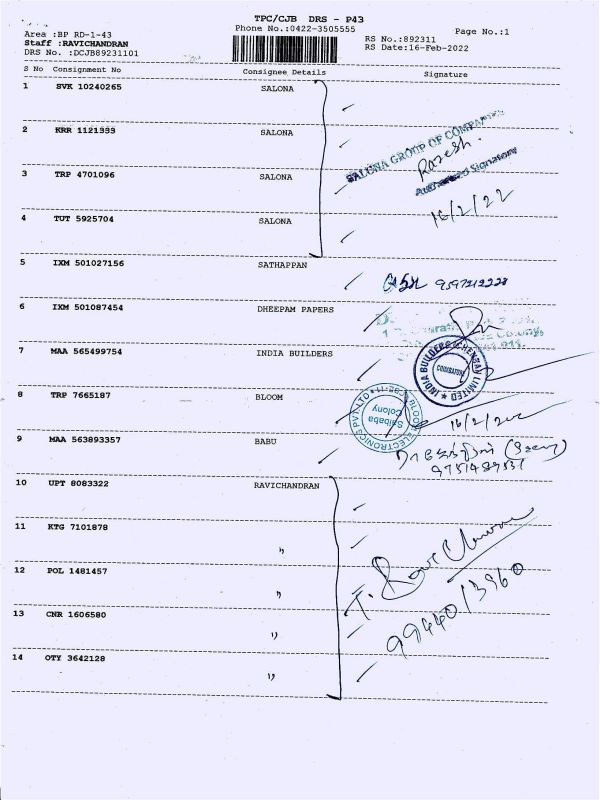 TPC/CJB DRS - P43
Phone No.:0422-3505555
Page No.:1
Area :BP RD-1-43
Staff :RAVICHANDRAN
DRS No. :DCJB89231101
RS No.:892311
RS Date:16-Feb-2022
S No Consignment No Consignee Details Signature
1 SVK 10240265 SALONA
2 KRR 1121333 SALONA
SALONA GROUP OF COMPANIES
Rajesh.
Authorised Signatory
3 TRP 4701096 SALONA
16/2/22
4 TUT 5925704 SALONA
5 IXM 501027156 SATHAPPAN
9597212228
6 IXM 501087454 DHEEPAM PAPERS
Colony,
7 MAA 565499754 INDIA BUILDERS
INDIA BUILDERS (CHENNAI) LIMITED
COIMBATORE
8 TRP 7665187 BLOOM
BLOOM ELECTRONICS PVT.LTD
Saibaba
Colony
9 MAA 563893357 BABU
10 UPT 8083322 RAVICHANDRAN
11 KTG 7101878 "
12 POL 1481457 "
T. Ravichandran
9944013960
13 CNR 1606580 "
14 OTY 3642128 "